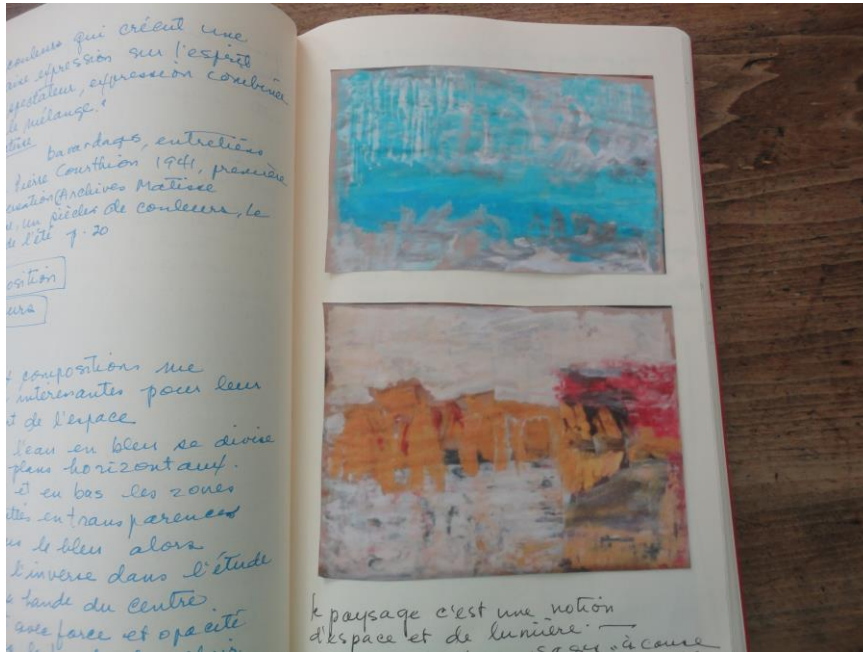 couleurs qui créent une
expression sur l'esprit
spectateur, expression combinée
le mélange."
bavardages, entretiens
Pierre Courthion 1941, première
(Archives Matisse
un siècle de couleurs, Le
de l'été p. 20
osition
eurs
compositions me
intéressantes pour leur
t de l'espace
l'eau en bleu se divise
plans horizontaux.
et en bas les zones
en transparences
le bleu alors
l'inverse dans l'étude
bande du centre
avec force et opacité
le paysage c'est une notion
d'espace et de lumière. —
à cause